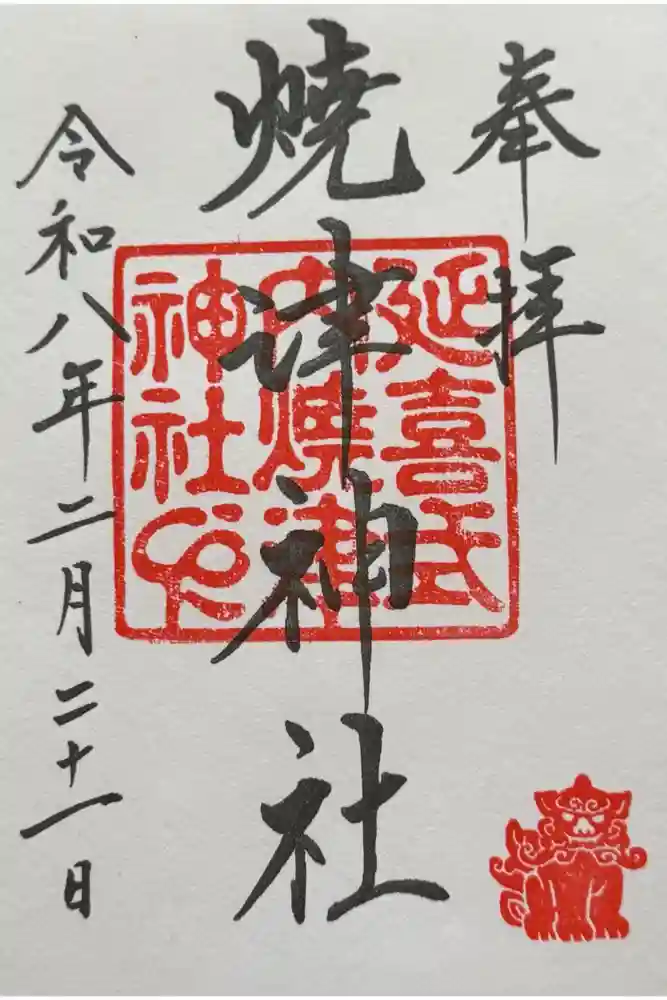 奉拝
燒津神社
延喜式
内燒津
神社印
令和八年二月二十一日